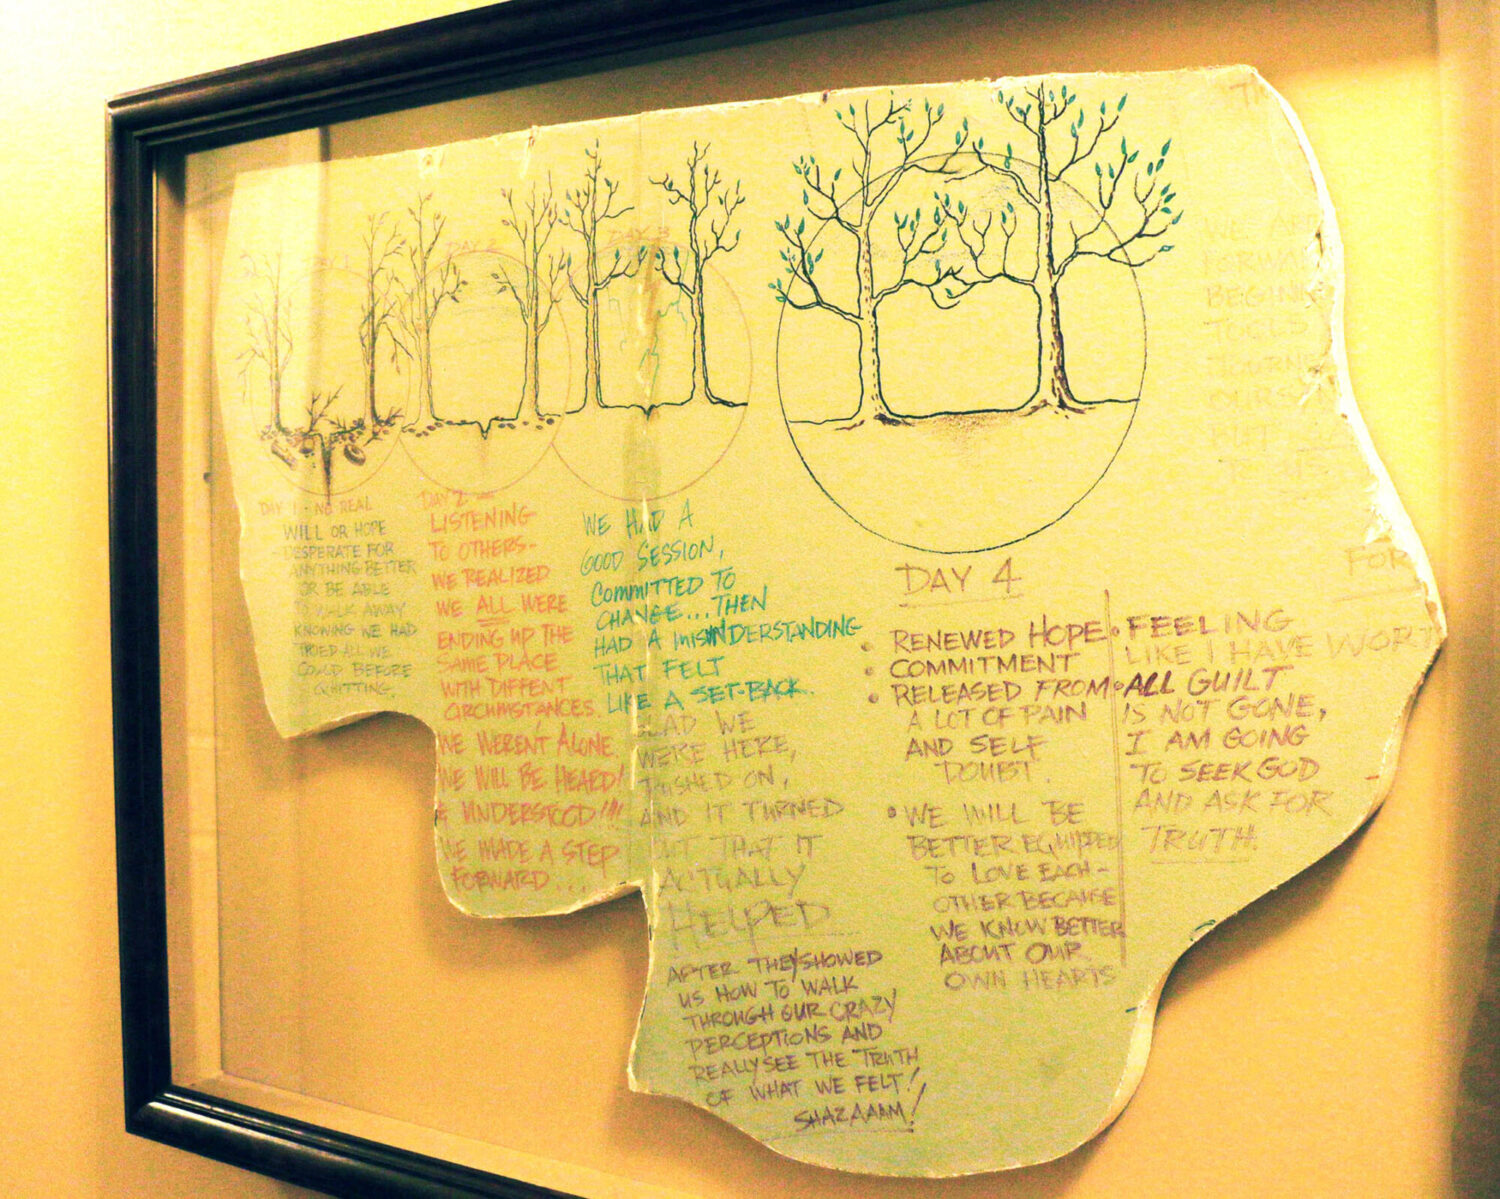 DAY 1
DAY 2
DAY 3
DAY 1 - NO REAL
WILL OR HOPE
- DESPERATE FOR
ANYTHING BETTER
OR BE ABLE
TO WALK AWAY
KNOWING WE HAD
TRIED ALL WE
COULD BEFORE
QUITTING.
DAY 2 -
LISTENING
TO OTHERS-
WE REALIZED
WE ALL WERE
ENDING UP THE
SAME PLACE
WITH DIFFENT
CIRCUMSTANCES.
WE WEREN'T ALONE.
WE WILL BE HEARD!
& UNDERSTOOD!!!!
WE MADE A STEP
FORWARD...
WE HAD A
GOOD SESSION,
COMMITTED TO
CHANGE... THEN
HAD A MISUNDERSTANDING
THAT FELT
LIKE A SET-BACK.
GLAD WE
WERE HERE,
PUSHED ON,
AND IT TURNED
OUT THAT IT
ACTUALLY
HELPED
AFTER THEY SHOWED
US HOW TO WALK
THROUGH OUR CRAZY
PERCEPTIONS AND
REALLY SEE THE TRUTH
OF WHAT WE FELT!
SHAZAAAM!
DAY 4
• RENEWED HOPE
• COMMITMENT
• RELEASED FROM
A LOT OF PAIN
AND SELF
DOUBT.
• WE WILL BE
BETTER EQUIPPED
TO LOVE EACH-
OTHER BECAUSE
WE KNOW BETTER
ABOUT OUR
OWN HEARTS
• FEELING
LIKE I HAVE WORT
• ALL GUILT
IS NOT GONE,
I AM GOING
TO SEEK GOD
AND ASK FOR
TRUTH.
WE ARE
FORWA
BEGINN
TOOLS
JOURN
OURS
BUT
FOR